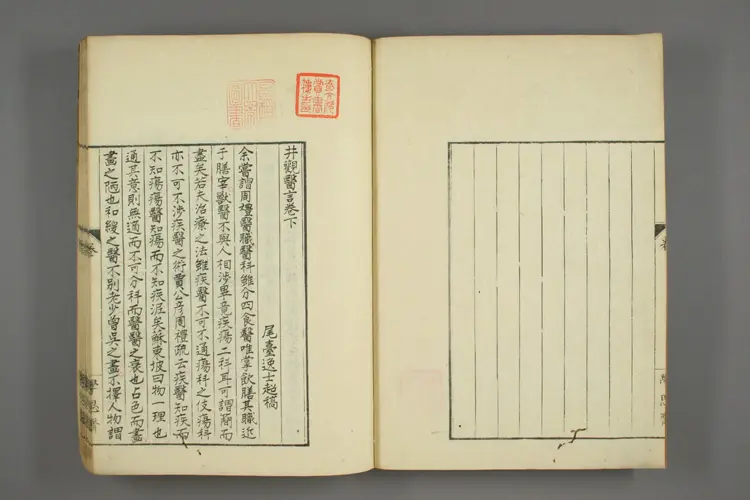 井觀醫言卷下
尾臺逸士起稿
余嘗謂周禮醫職醫科雖分四食醫唯掌飲膳其職近
于膳宰獸醫不與人相涉畢竟疾瘍二科耳可謂簡而
盡矣若夫治療之法雖疾醫不可不通瘍科之伎瘍科
亦不可不涉疾醫之術賈公彥周禮疏云疾醫知疾而
不知瘍瘍醫知瘍而不知疾泥矣蘇東坡曰物一理也
通其意則無適而不可分科而醫醫之衰也占色而畫
畫之陋也和緩之醫不別老少曾吳之畫不擇人物謂